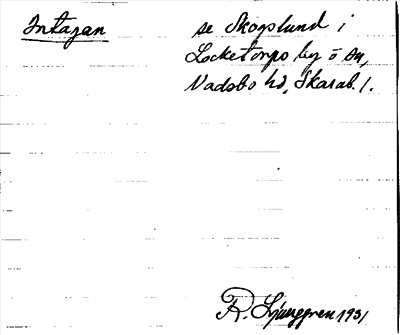 Intagan
se Skogslund i
Locketorps by ö sn,
Vadsbo hd, Skarab. l.
R. Ljunggren 1931